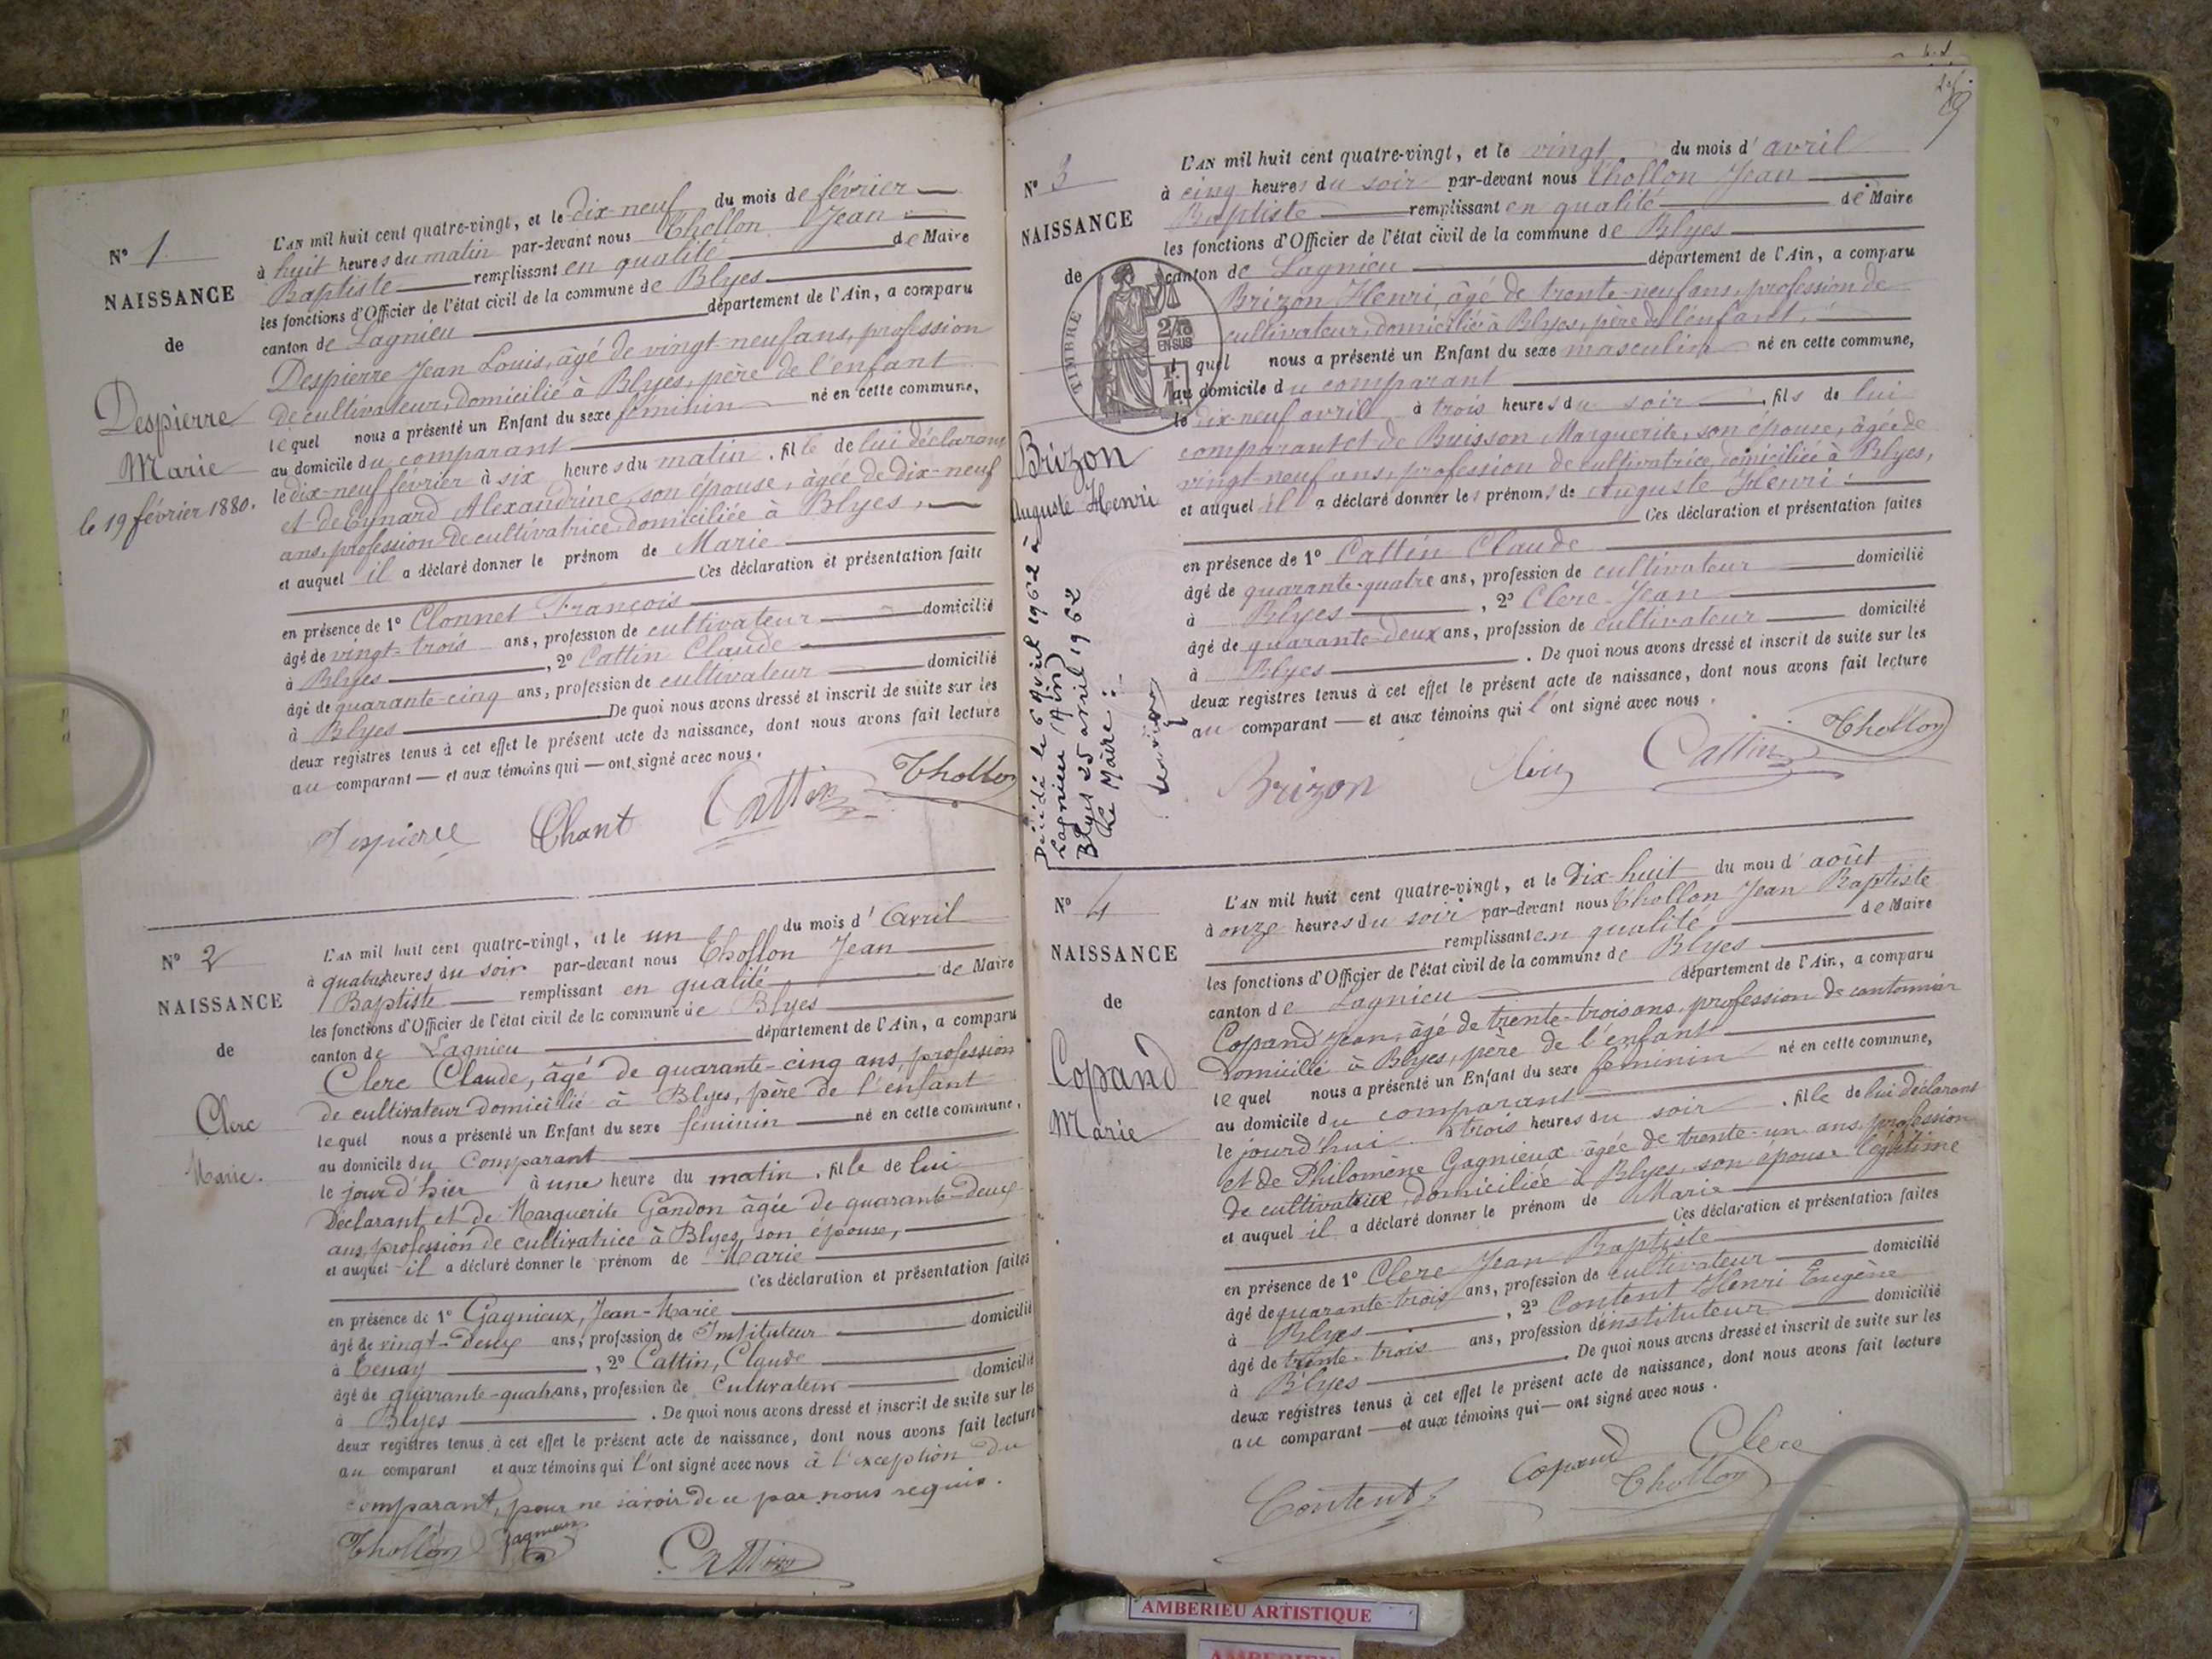 N° 1
NAISSANCE
de
Despierre
Marie
le 19 février 1880.
L'AN mil huit cent quatre-vingt, et le dix-neuf du mois de février
à huit heures du matin par-devant nous Thollon Jean
Baptiste remplissant en qualité de Maire
les fonctions d'Officier de l'état civil de la commune de Blyes
canton de Lagnieu département de l'Ain, a comparu
Despierre Jean Louis, âgé de vingt-neuf ans, profession
de cultivateur, domicilié à Blyes, père de l'enfant
lequel nous a présenté un Enfant du sexe féminin né en cette commune,
au domicile du comparant
le dix-neuf février à six heures du matin, fille de lui déclarant
et de Eynard Alexandrine, son épouse, âgée de dix-neuf
ans, profession de cultivatrice, domiciliée à Blyes,
et auquel il a déclaré donner le prénom de Marie
Ces déclaration et présentation faite
en présence de 1° Clonnet François
âgé de vingt-trois ans, profession de cultivateur domicilié
à Blyes, 2° Cattin Claude
âgé de quarante-cinq ans, profession de cultivateur domicilié
à Blyes De quoi nous avons dressé et inscrit de suite sur les
deux registres tenus à cet effet le présent acte de naissance, dont nous avons fait lecture
au comparant — et aux témoins qui — ont signé avec nous.
Despierre Chant Cattin Thollon
N° 2
NAISSANCE
de
Clerc
Marie.
L'AN mil huit cent quatre-vingt, et le un du mois d'Avril
à quatre heures du soir par-devant nous Thollon Jean
Baptiste remplissant en qualité de Maire
les fonctions d'Officier de l'état civil de la commune de Blyes
canton de Lagnieu département de l'Ain, a comparu
Clerc Claude, âgé de quarante-cinq ans, profession
de cultivateur domicilié à Blyes, père de l'enfant
lequel nous a présenté un Enfant du sexe féminin né en cette commune,
au domicile du Comparant
le jour d'hier à une heure du matin, fille de lui
Déclarant et de Marguerite Gandon âgée de quarante-deux
ans, profession de cultivatrice à Blyes, son épouse,
et auquel il a déclaré donner le prénom de Marie
Ces déclaration et présentation faites
en présence de 1° Gagnieux, Jean-Marie
âgé de vingt-deux ans, profession de Instituteur domicilié
à Tenay, 2° Cattin, Claude
âgé de quarante-quatre ans, profession de Cultivateur domicilié
à Blyes. De quoi nous avons dressé et inscrit de suite sur les
deux registres tenus à cet effet le présent acte de naissance, dont nous avons fait lecture
au comparant et aux témoins qui l'ont signé avec nous à l'exception du
comparant, pour ne savoir de ce par nous requis.
Thollon Gagnieux Cattin
N° 3
NAISSANCE
de
TIMBRE
2/10
EN SUS
Brizon
Auguste Henri
Décédé le 6 Avril 1962 à
Lagnieu (Ain)
Blyes 25 avril 1962
Le Maire :
L'AN mil huit cent quatre-vingt, et le vingt du mois d'avril
à cinq heures du soir par-devant nous Thollon Jean
Baptiste remplissant en qualité de Maire
les fonctions d'Officier de l'état civil de la commune de Blyes
canton de Lagnieu département de l'Ain, a comparu
Brizon Henri, âgé de trente-neuf ans, profession de
cultivateur, domicilié à Blyes, père de l'enfant,
lequel nous a présenté un Enfant du sexe masculin né en cette commune,
au domicile du comparant
le dix-neuf avril à trois heures du soir, fils de lui
comparant et de Buisson Marguerite, son épouse, âgée de
vingt-neuf ans, profession de cultivatrice, domiciliée à Blyes,
et auquel il a déclaré donner les prénoms de Auguste Henri.
Ces déclaration et présentation faites
en présence de 1° Cattin Claude
âgé de quarante-quatre ans, profession de cultivateur domicilié
à Blyes, 2° Clerc Jean
âgé de quarante-deux ans, profession de cultivateur domicilié
à Blyes. De quoi nous avons dressé et inscrit de suite sur les
deux registres tenus à cet effet le présent acte de naissance, dont nous avons fait lecture
au comparant — et aux témoins qui l'ont signé avec nous.
Brizon Cattin Thollon
N° 4
NAISSANCE
de
Copand
Marie
L'AN mil huit cent quatre-vingt, et le Dix-huit du mois d'août
à onze heures du soir par-devant nous Thollon Jean Baptiste
remplissant en qualité de Maire
les fonctions d'Officier de l'état civil de la commune de Blyes
canton de Lagnieu département de l'Ain, a comparu
Copand Jean, âgé de trente-trois ans, profession de cantonnier
Domicilié à Blyes, père de l'enfant
lequel nous a présenté un Enfant du sexe féminin né en cette commune,
au domicile du comparant
le jourd'hui à trois heures du soir, fille de lui déclarant
et de Philomène Gagnieux âgée de trente-un ans, profession
de cultivatrice, domiciliée à Blyes, son épouse légitime
et auquel il a déclaré donner le prénom de Marie
Ces déclaration et présentation faites
en présence de 1° Clerc Jean Baptiste
âgé de quarante-trois ans, profession de cultivateur domicilié
à Blyes, 2° Content Henri Eugène
âgé de trente-trois ans, profession d'instituteur domicilié
à Blyes. De quoi nous avons dressé et inscrit de suite sur les
deux registres tenus à cet effet le présent acte de naissance, dont nous avons fait lecture
au comparant — et aux témoins qui — ont signé avec nous.
Content Copand Clerc
Thollon
AMBERIEU ARTISTIQUE
AMBERIEU